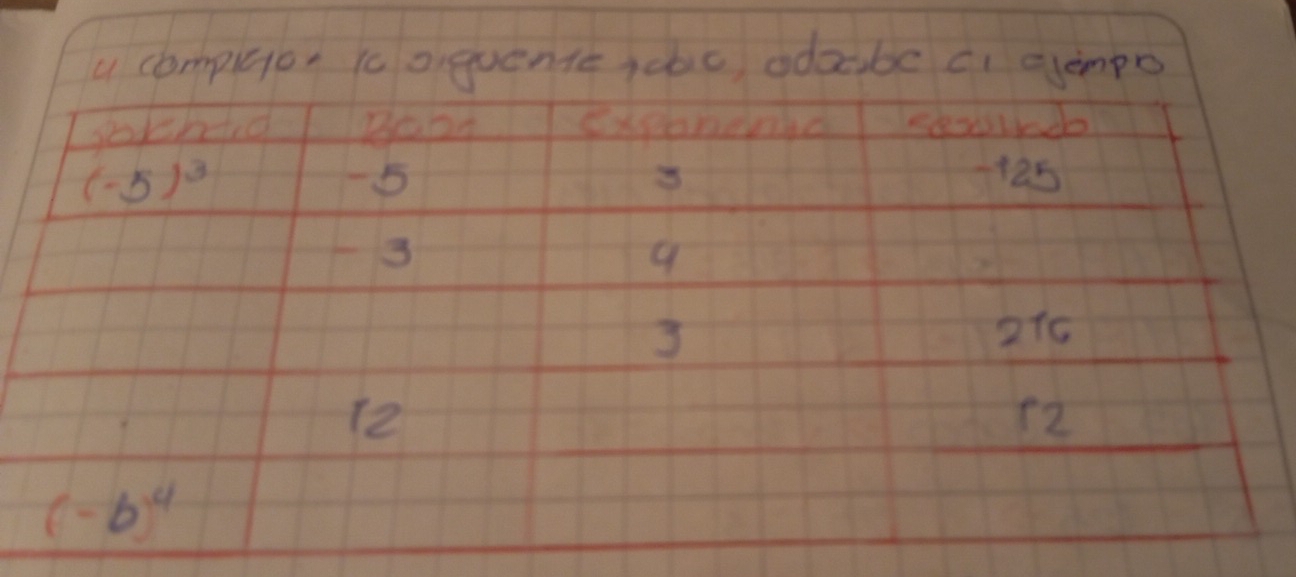 4 completar la siguente tabla, observe el ejempro
potencia Base exponente resultado
(-5)³ -5 3 -125
-3 4
3 216
12 12
(-b)⁴